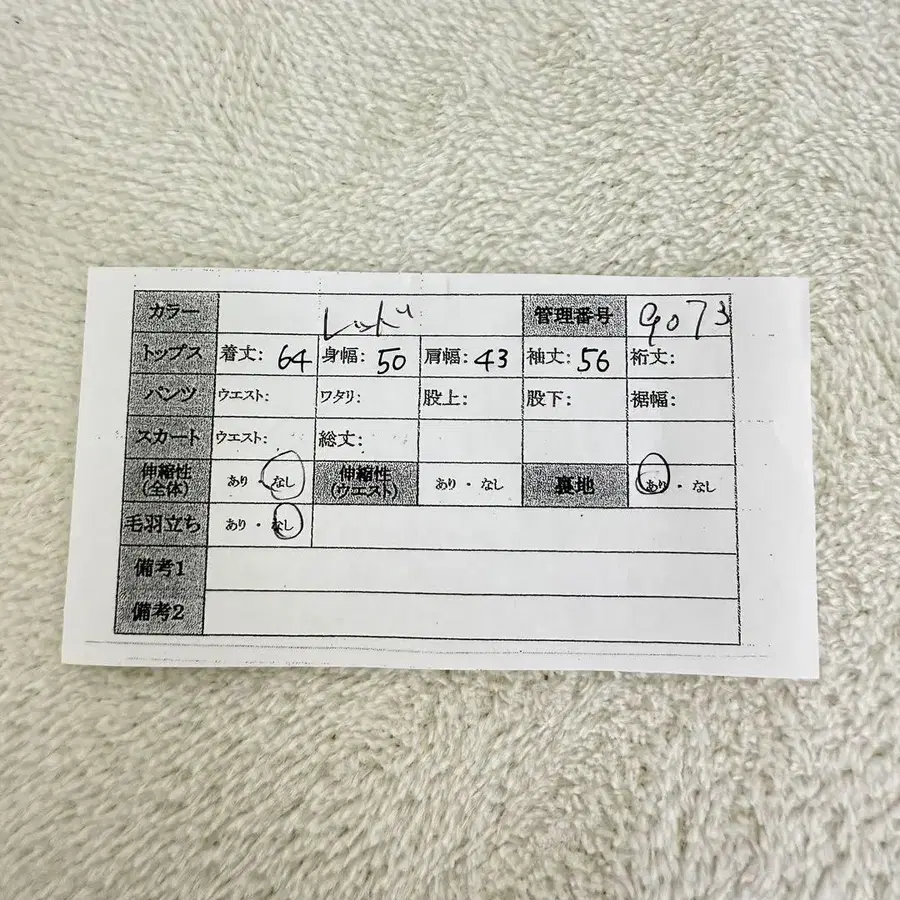 カラー レッド 管理番号 9073
トップス 着丈: 64 身幅: 50 肩幅: 43 袖丈: 56 裄丈:
パンツ ウエスト: ワタリ: 股上: 股下: 裾幅:
スカート ウエスト: 総丈:
伸縮性(全体) あり・なし 伸縮性(ウエスト) あり・なし 裏地 あり・なし
毛羽立ち あり・なし
備考1
備考2